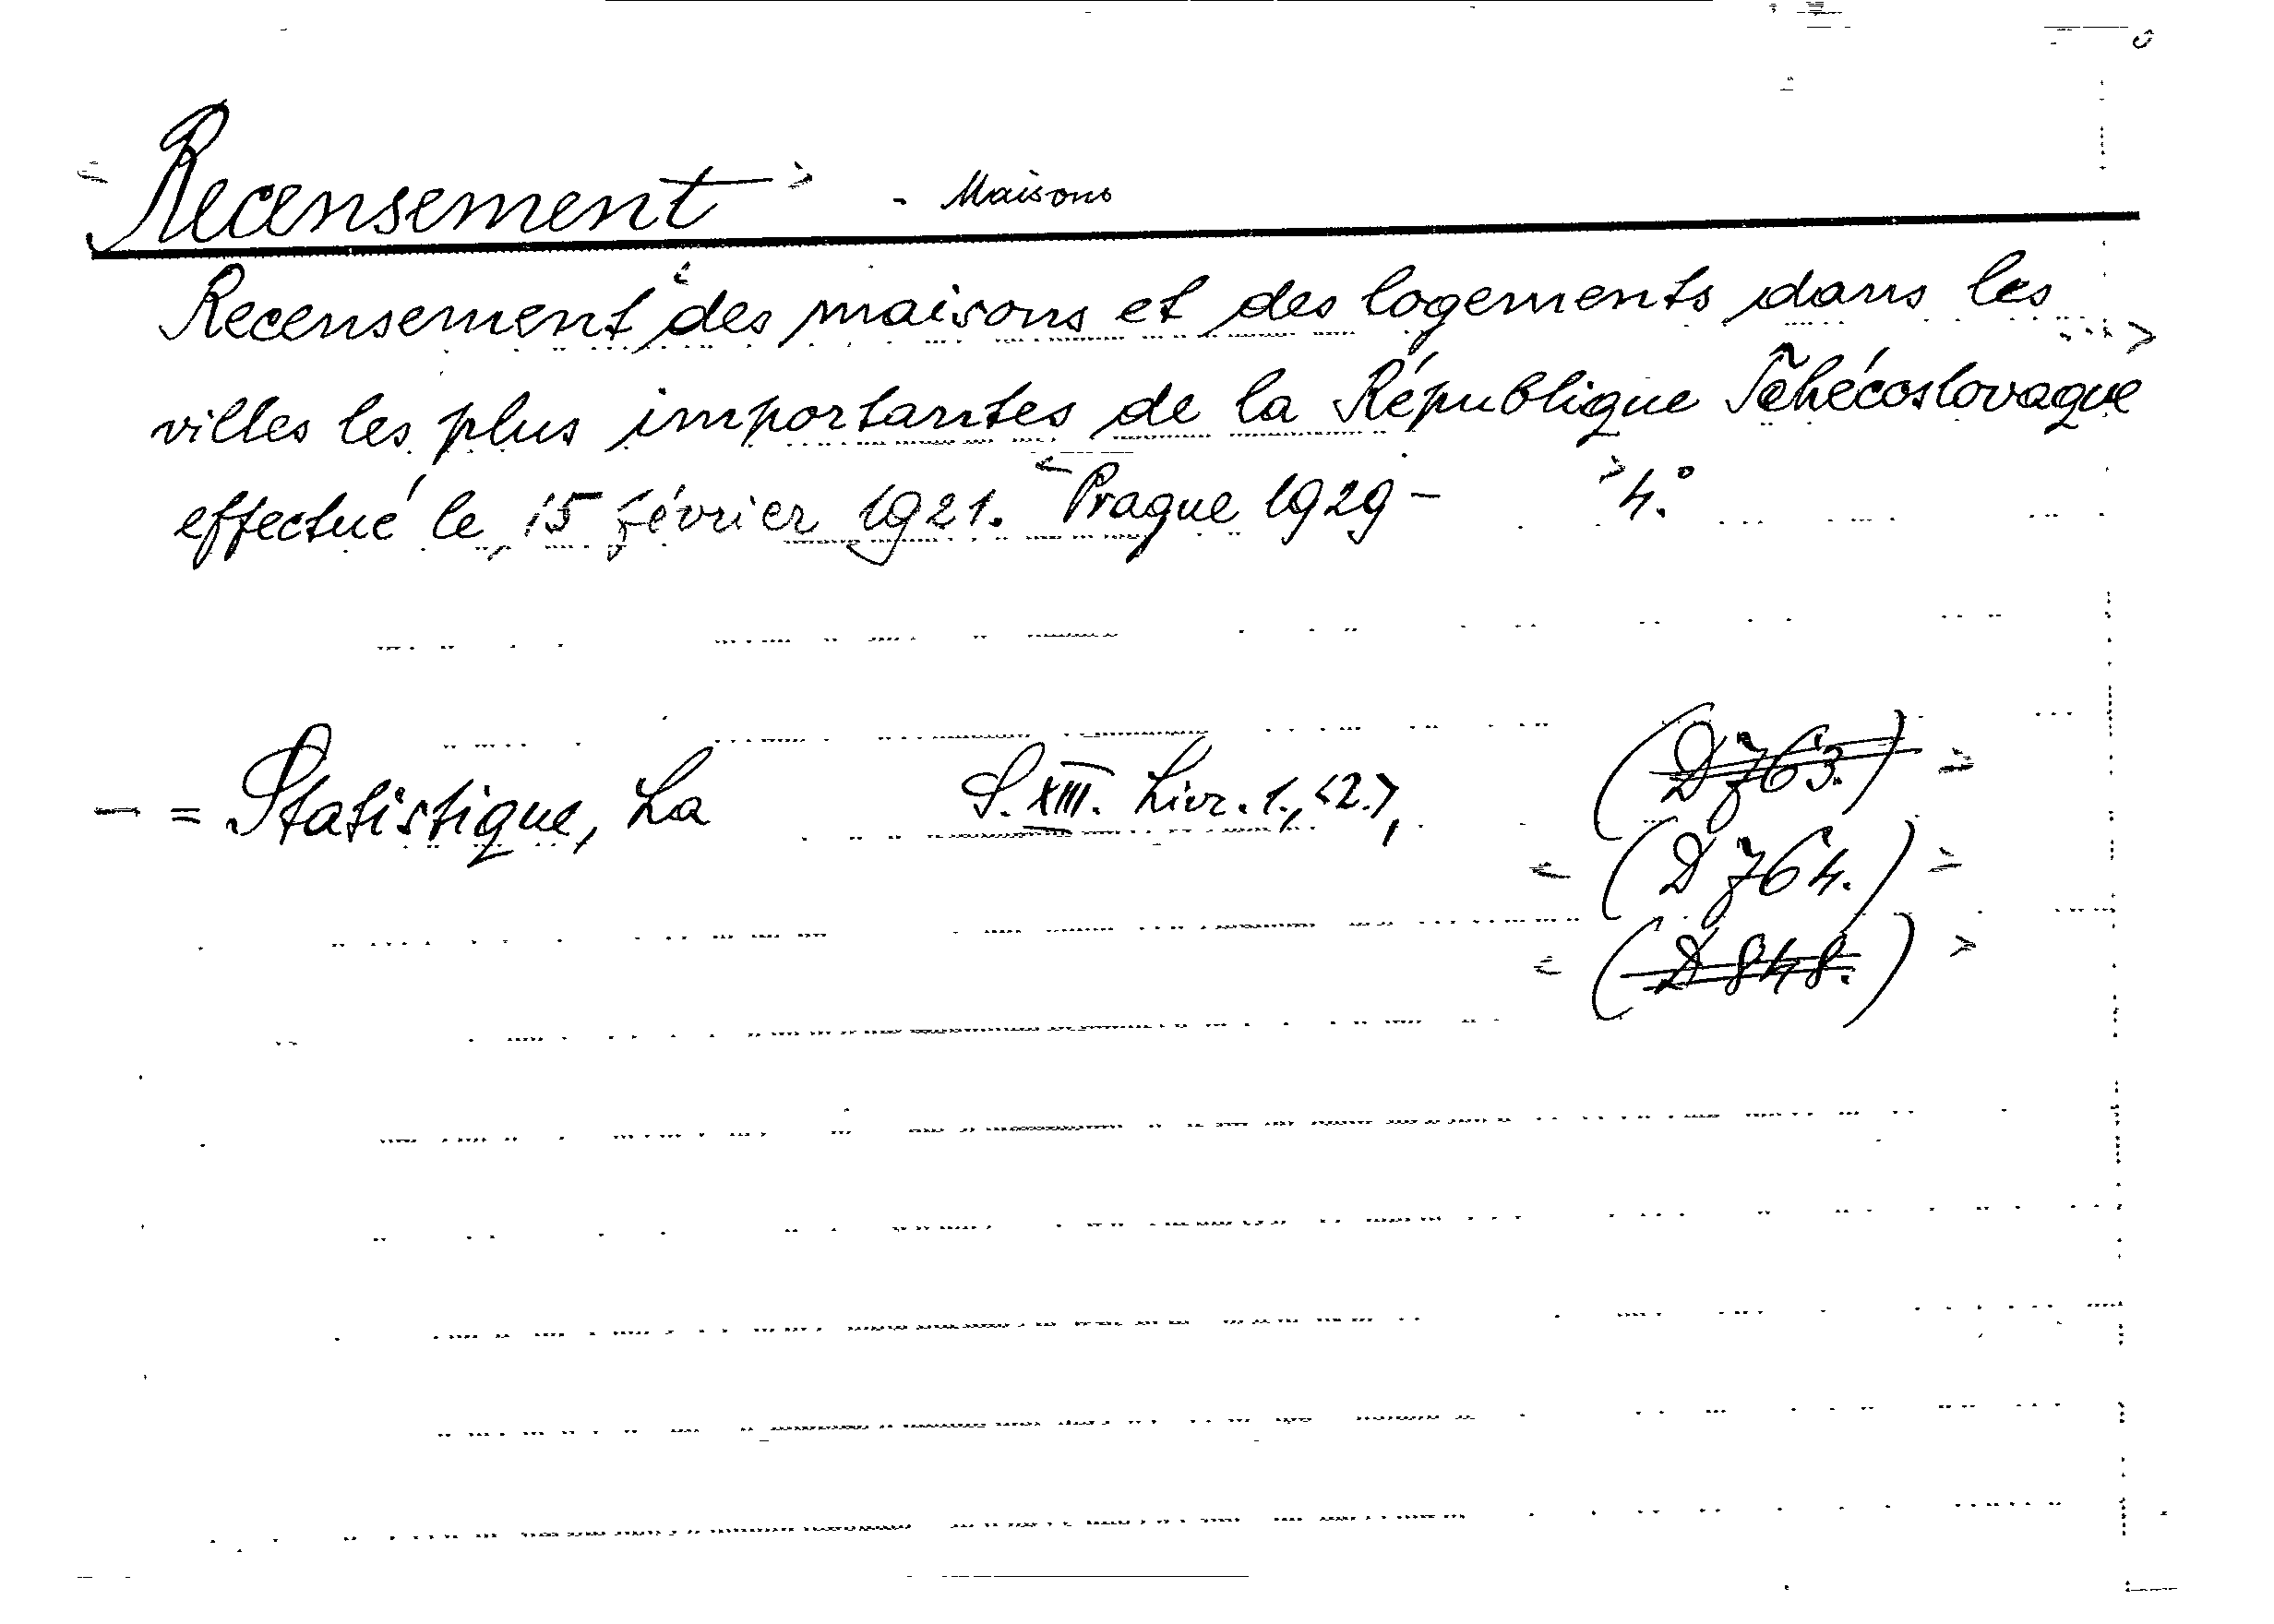 < Recensement > - Maisons
Recensement < des maisons et des logements dans les >
villes les plus importantes de la République Tčhécoslovaque
effectué le 15 février 1921. < Prague 1929 – > 4.°
– = Statistique, La S. XIII. Livr. 1., <2.>, (D 763.) >
< (D 764.) >
< (D 848.) >